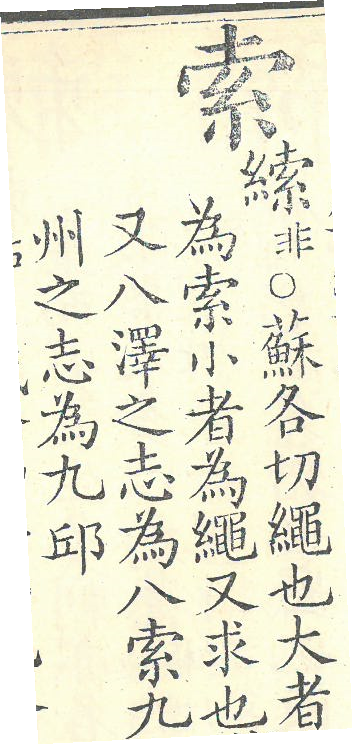 索
𦃇非○蘇各切繩也大者
為索小者為繩又求也
又八澤之志為八索九
州之志為九邱